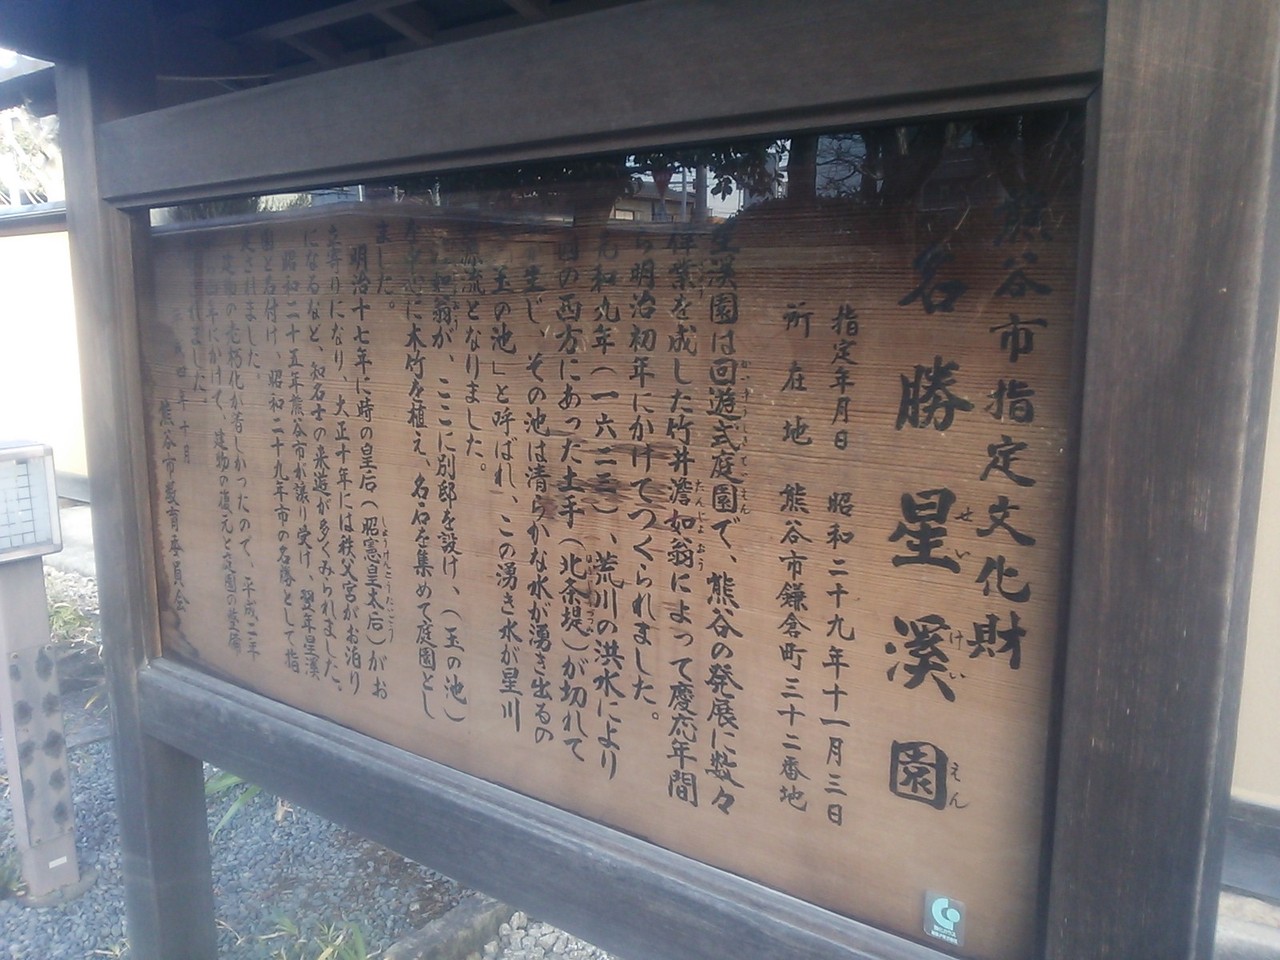 熊谷市指定文化財
名勝 星溪園
せい けい えん
指定年月日 昭和二十九年十一月三日
所在地 熊谷市鎌倉町三十二番地
星溪園は回遊式庭園で、熊谷の発展に数々
かいゆうしきていえん
偉業を成した竹井澹如翁によって慶応年間
たんじょおう
ら明治初年にかけてつくられました。
元和九年（一六二三）、荒川の洪水により
園の西方にあった土手（北条堤）が切れて
生じ、その池は清らかな水が湧き出るの
玉の池」と呼ばれ、この湧き水が星川
源流となりました。
澹如翁が、ここに別邸を設け、（玉の池）
を中心に木竹を植え、名石を集めて庭園とし
ました。
明治十七年に時の皇后（昭憲皇太后）がお
しょうけんこうたいごう
立寄りになり、大正十年には秩父宮がお泊り
になるなど、知名士の来遊が多くみられました。
昭和二十五年熊谷市が譲り受け、翌年星溪
園と名付け、昭和二十九年市の名勝として指
定されました。
建物の老朽化が著しかったので、平成二年
四年にかけて、建物の復元と庭園の整備
ました。
四年十月
熊谷市教育委員会